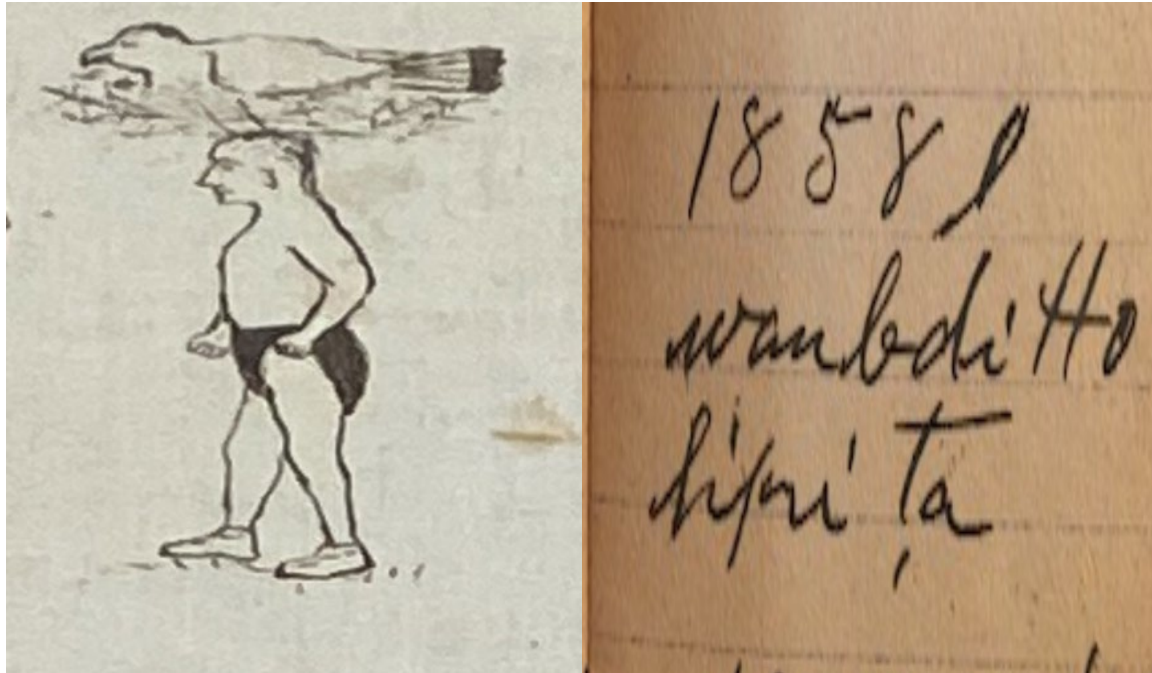 1858
wanbdi Ho
hipi ṭa